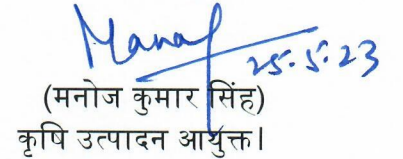 Manoj
25.5.23
(मनोज कुमार सिंह)
कृषि उत्पादन आयुक्त।